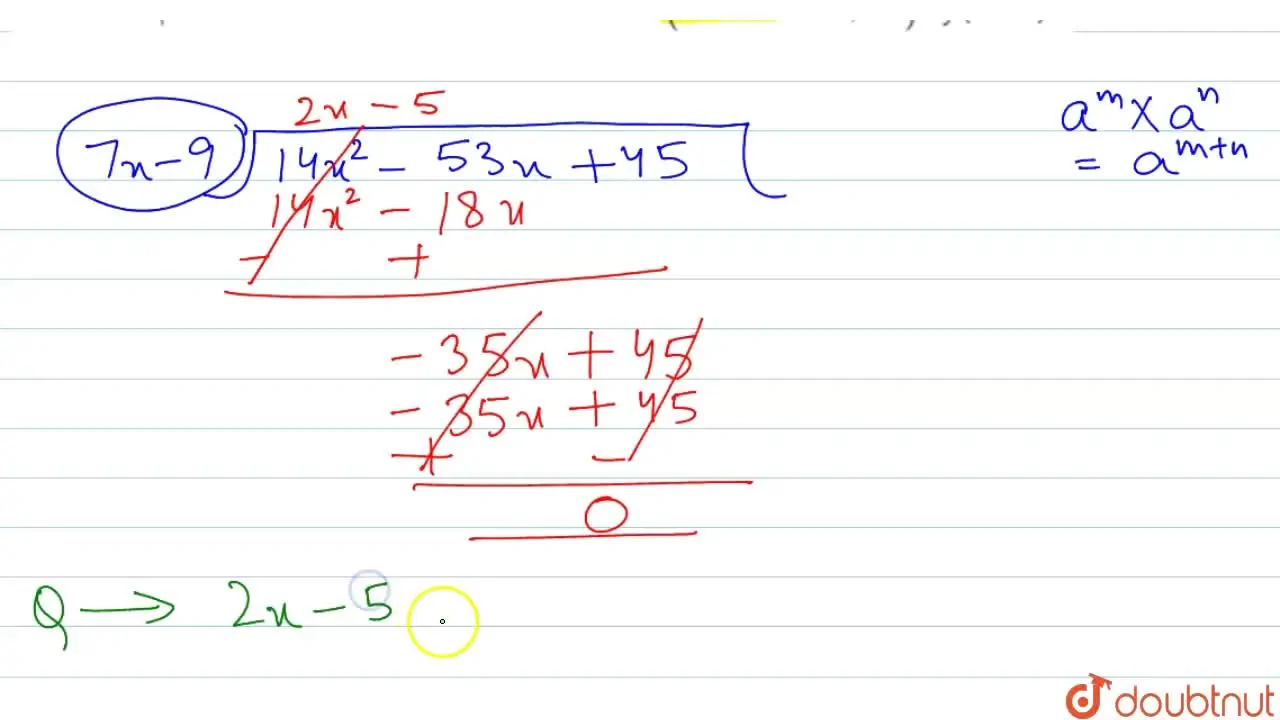 2x - 5
7x - 9 ) 14x² - 53x + 45 (
14x² - 18x
- +
- 35x + 45
- 35x + 45
+ -
0
Q → 2x - 5
aᵐ × aⁿ
= aᵐ⁺ⁿ
doubtnut